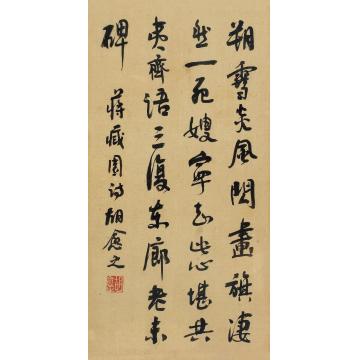 朔雪炎風閃畫旗淒
然一死嫂寧知此心堪共
夷齊語三復東廊老朱
碑 蔣藏園詩 胡愈之